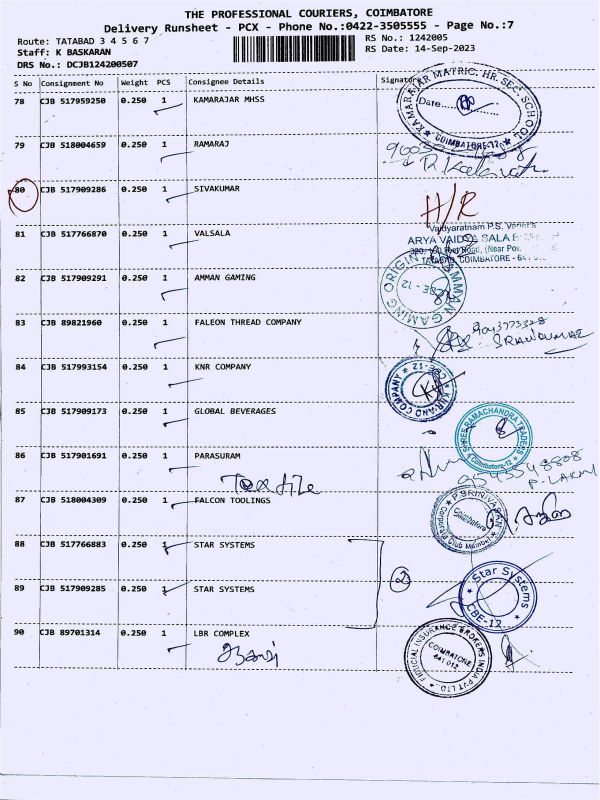 THE PROFESSIONAL COURIERS, COIMBATORE
Delivery Runsheet - PCX - Phone No.:0422-3505555 - Page No.:7
Route: TATABAD 3 4 5 6 7
RS No.: 1242005
Staff: K BASKARAN
RS Date: 14-Sep-2023
DRS No.: DCJB124200507
S No Consignment No Weight PCS Consignee Details Signature
78 CJB 517959250 0.250 1 KAMARAJAR MHSS
KAMARAJAR MATRIC. HR. SEC. SCHOOL
Date
COIMBATORE-12
79 CJB 518004659 0.250 1 RAMARAJ
80 CJB 517909286 0.250 1 SIVAKUMAR
H/R
81 CJB 517766870 0.250 1 VALSALA
Vaidyaratnam P.S. Varier's
ARYA VAIDYA SALA
TATABAD, COIMBATORE - 641 012
82 CJB 517909291 0.250 1 AMMAN GAMING
AMMAN GAMING ORIGIN
CBE - 12
83 CJB 89821960 0.250 1 FALEON THREAD COMPANY
9043773328
SRAVANKUMAR
84 CJB 517993154 0.250 1 KNR COMPANY
KNR AND COMPANY
85 CJB 517909173 0.250 1 GLOBAL BEVERAGES
SHREE RAMACHANDRA TRADERS
Coimbatore-12
86 CJB 517901691 0.250 1 PARASURAM
Textile
P. LAXMI
87 CJB 518004309 0.250 1 FALCON TOOLINGS
P. SRINIVASAN
Coimbatore
Corporate Club Member
88 CJB 517766883 0.250 1 STAR SYSTEMS
89 CJB 517909285 0.250 1 STAR SYSTEMS
2
Star Systems
CBE-12
90 CJB 89701314 0.250 1 LBR COMPLEX
FIDUCIAL INSURANCE BROKERS INDIA PVT LTD.
COIMBATORE
641 012